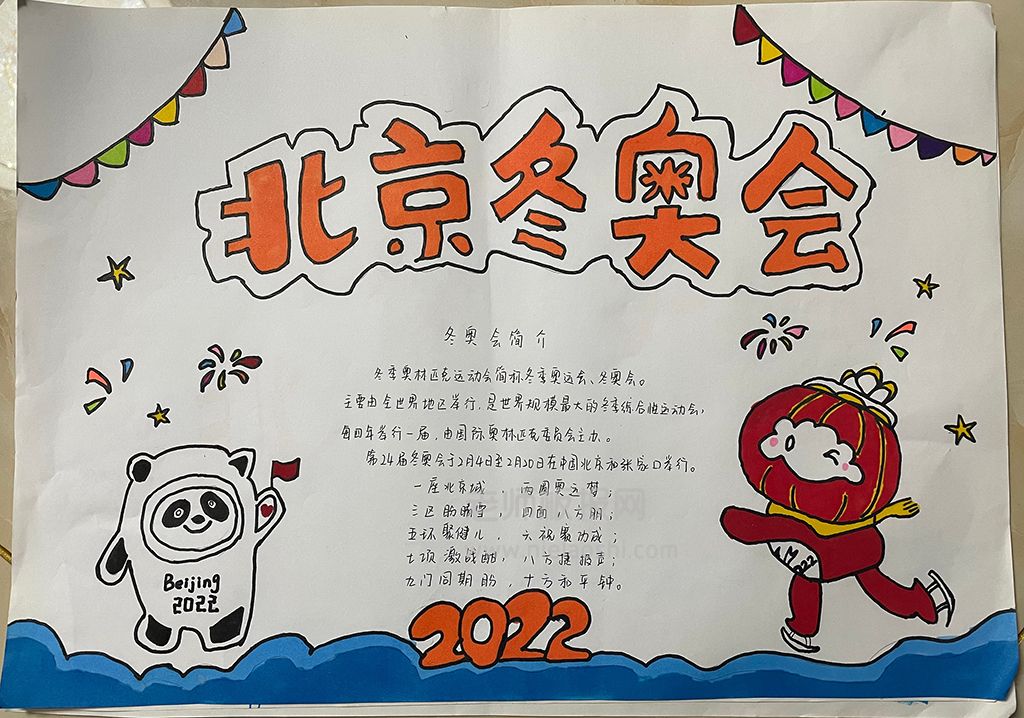 北京冬奥会
冬奥会简介
冬季奥林匹克运动会简称冬季奥运会、冬奥会。
主要由全世界地区举行,是世界规模最大的冬季综合性运动会,
每四年举行一届,由国际奥林匹克委员会主办。
第24届冬奥会于2月4日至2月20日在中国北京和张家口举行。
一座北京城 两圆奥运梦;
三区盼腾空, 四面八方朋;
五环聚健儿, 六祝聚功成;
七项激战酣, 八方捷报声;
九门同期盼,十方和平钟。
Beijing
2022
2022